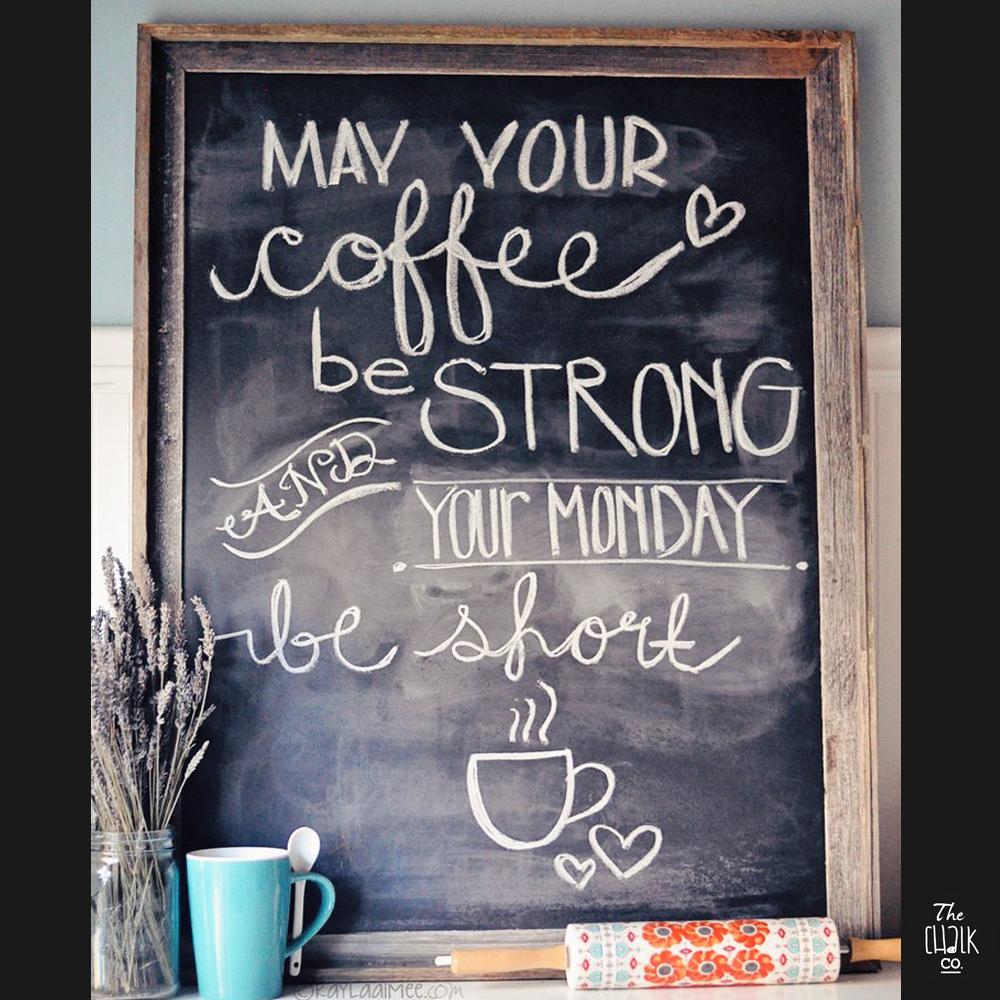 MAY YOUR
coffee
be STRONG
AND
YOUr MONDAY
be short
©kaylaaimee.com
The
CHALK
CO.